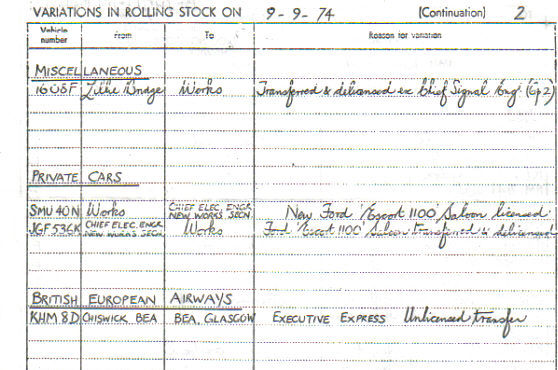 VARIATIONS IN ROLLING STOCK ON 9-9-74 (Continuation) 2
Vehicle number From To Reason for variation
MISCELLANEOUS
1608F Works Transferred & delicensed ex Chief Signal Engr (Gp 2)
PRIVATE CARS
SMU 40N Works CHIEF ELEC. ENGR NEW WORKS SECN. New Ford 'Escort 1100' Saloon licensed
JGF 536K CHIEF ELEC. ENGR NEW WORKS SECN. Works Ford 'Escort 1100' Saloon transferred & delicensed
BRITISH EUROPEAN AIRWAYS
KHM 8D CHISWICK, BEA BEA, GLASGOW EXECUTIVE EXPRESS Unlicensed transfer